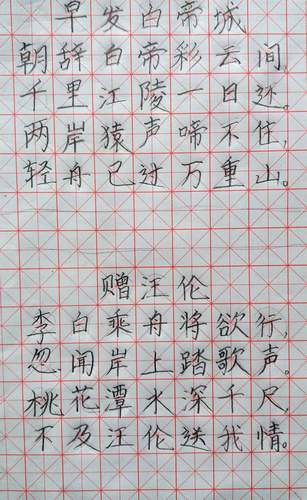 早发白帝城
朝辞白帝彩云间,
千里江陵一日还。
两岸猿声啼不住,
轻舟已过万重山。
赠汪伦
李白乘舟将欲行,
忽闻岸上踏歌声。
桃花潭水深千尺,
不及汪伦送我情。